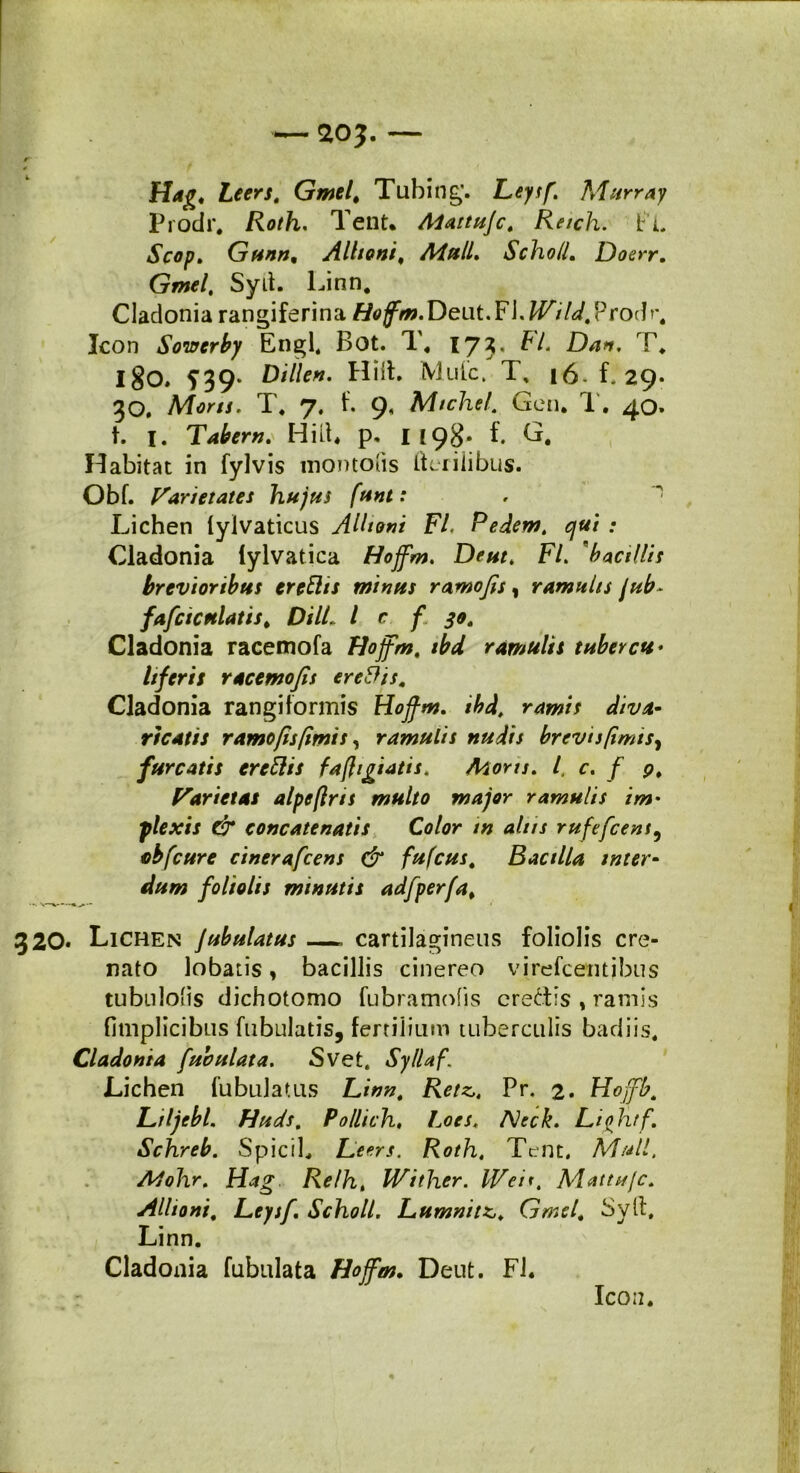 — 203. —
Hag. Leers. Gmel. Tubing. Leysf. Murray
Prodr. Roth. Tent. Mattuſc. Reich. Fl.
Scop. Gunn. Allioni. Mull. Scholl. Doerr.
Gmel. Syſt. Linn.
Cladonia rangiferina Hoffm. Deut. Fl. Wild. Prodr.
Icon Sowerby Engl. Bot. T. 173. Fl. Dan. T.
180. 539. Dillen. Hiſt. Muſc. T. 16. f. 29.
30. Moris. T. 7. f. 9. Michel. Gen. T. 40.
f. 1. Tabern. Hiſt. p. 1198. f. G.
Habitat in ſylvis montoſis ſterilibus.
Obſ. Varietates hujus ſunt:
Lichen ſylvaticus Allioni Fl. Pedem. qui:
Cladonia ſylvatica Hoffm. Deut. Fl. bacillis
brevioribus erectis minus ramoſis, ramulis ſub-
faſciculatis. Dill. l c f 30.
Cladonia racemoſa Hoffm. ibd ramulis tubercu-
liferis racemoſis erectis.
Cladonia rangiformis Hoffm. ibd. ramis diva-
ricatis ramoſisſimis, ramulis nudis brevisſimis,
furcatis erectis faſtigiatis. Moris. l. c. f 9.
Varietas alpeſtris multo major ramulis im-
plexis & concatenatis Color in aliis rufeſcens,
obſcure cineraſcens & fuſcus. Bacilla inter-
dum foliolis minutis adſperſa.
320. LICHEN ſubulatus — cartilagineus foliolis cre-
nato lobatis, bacillis cinereo vireſcentibus
tubuloſis dichotomo ſubramoſis erectis, ramis
ſimplicibus ſubulatis, fertilium tuberculis badiis.
Cladonia ſubulata. Svet. Syllaf.
Lichen ſubulatus Linn. Retz. Pr. 2. Hoffb.
Liljebl. Huds. Pollich. Loes. Neck. Lightf.
Schreb. Spicil. Leers. Roth. Tent. Mull.
Mohr. Hag Relh. Wither. Weis. Mattuſc.
Allioni. Leysf. Scholl. Lumnitz. Gmel. Syſt.
Linn.
Cladonia ſubulata Hoffm. Deut. Fl.
Icon.